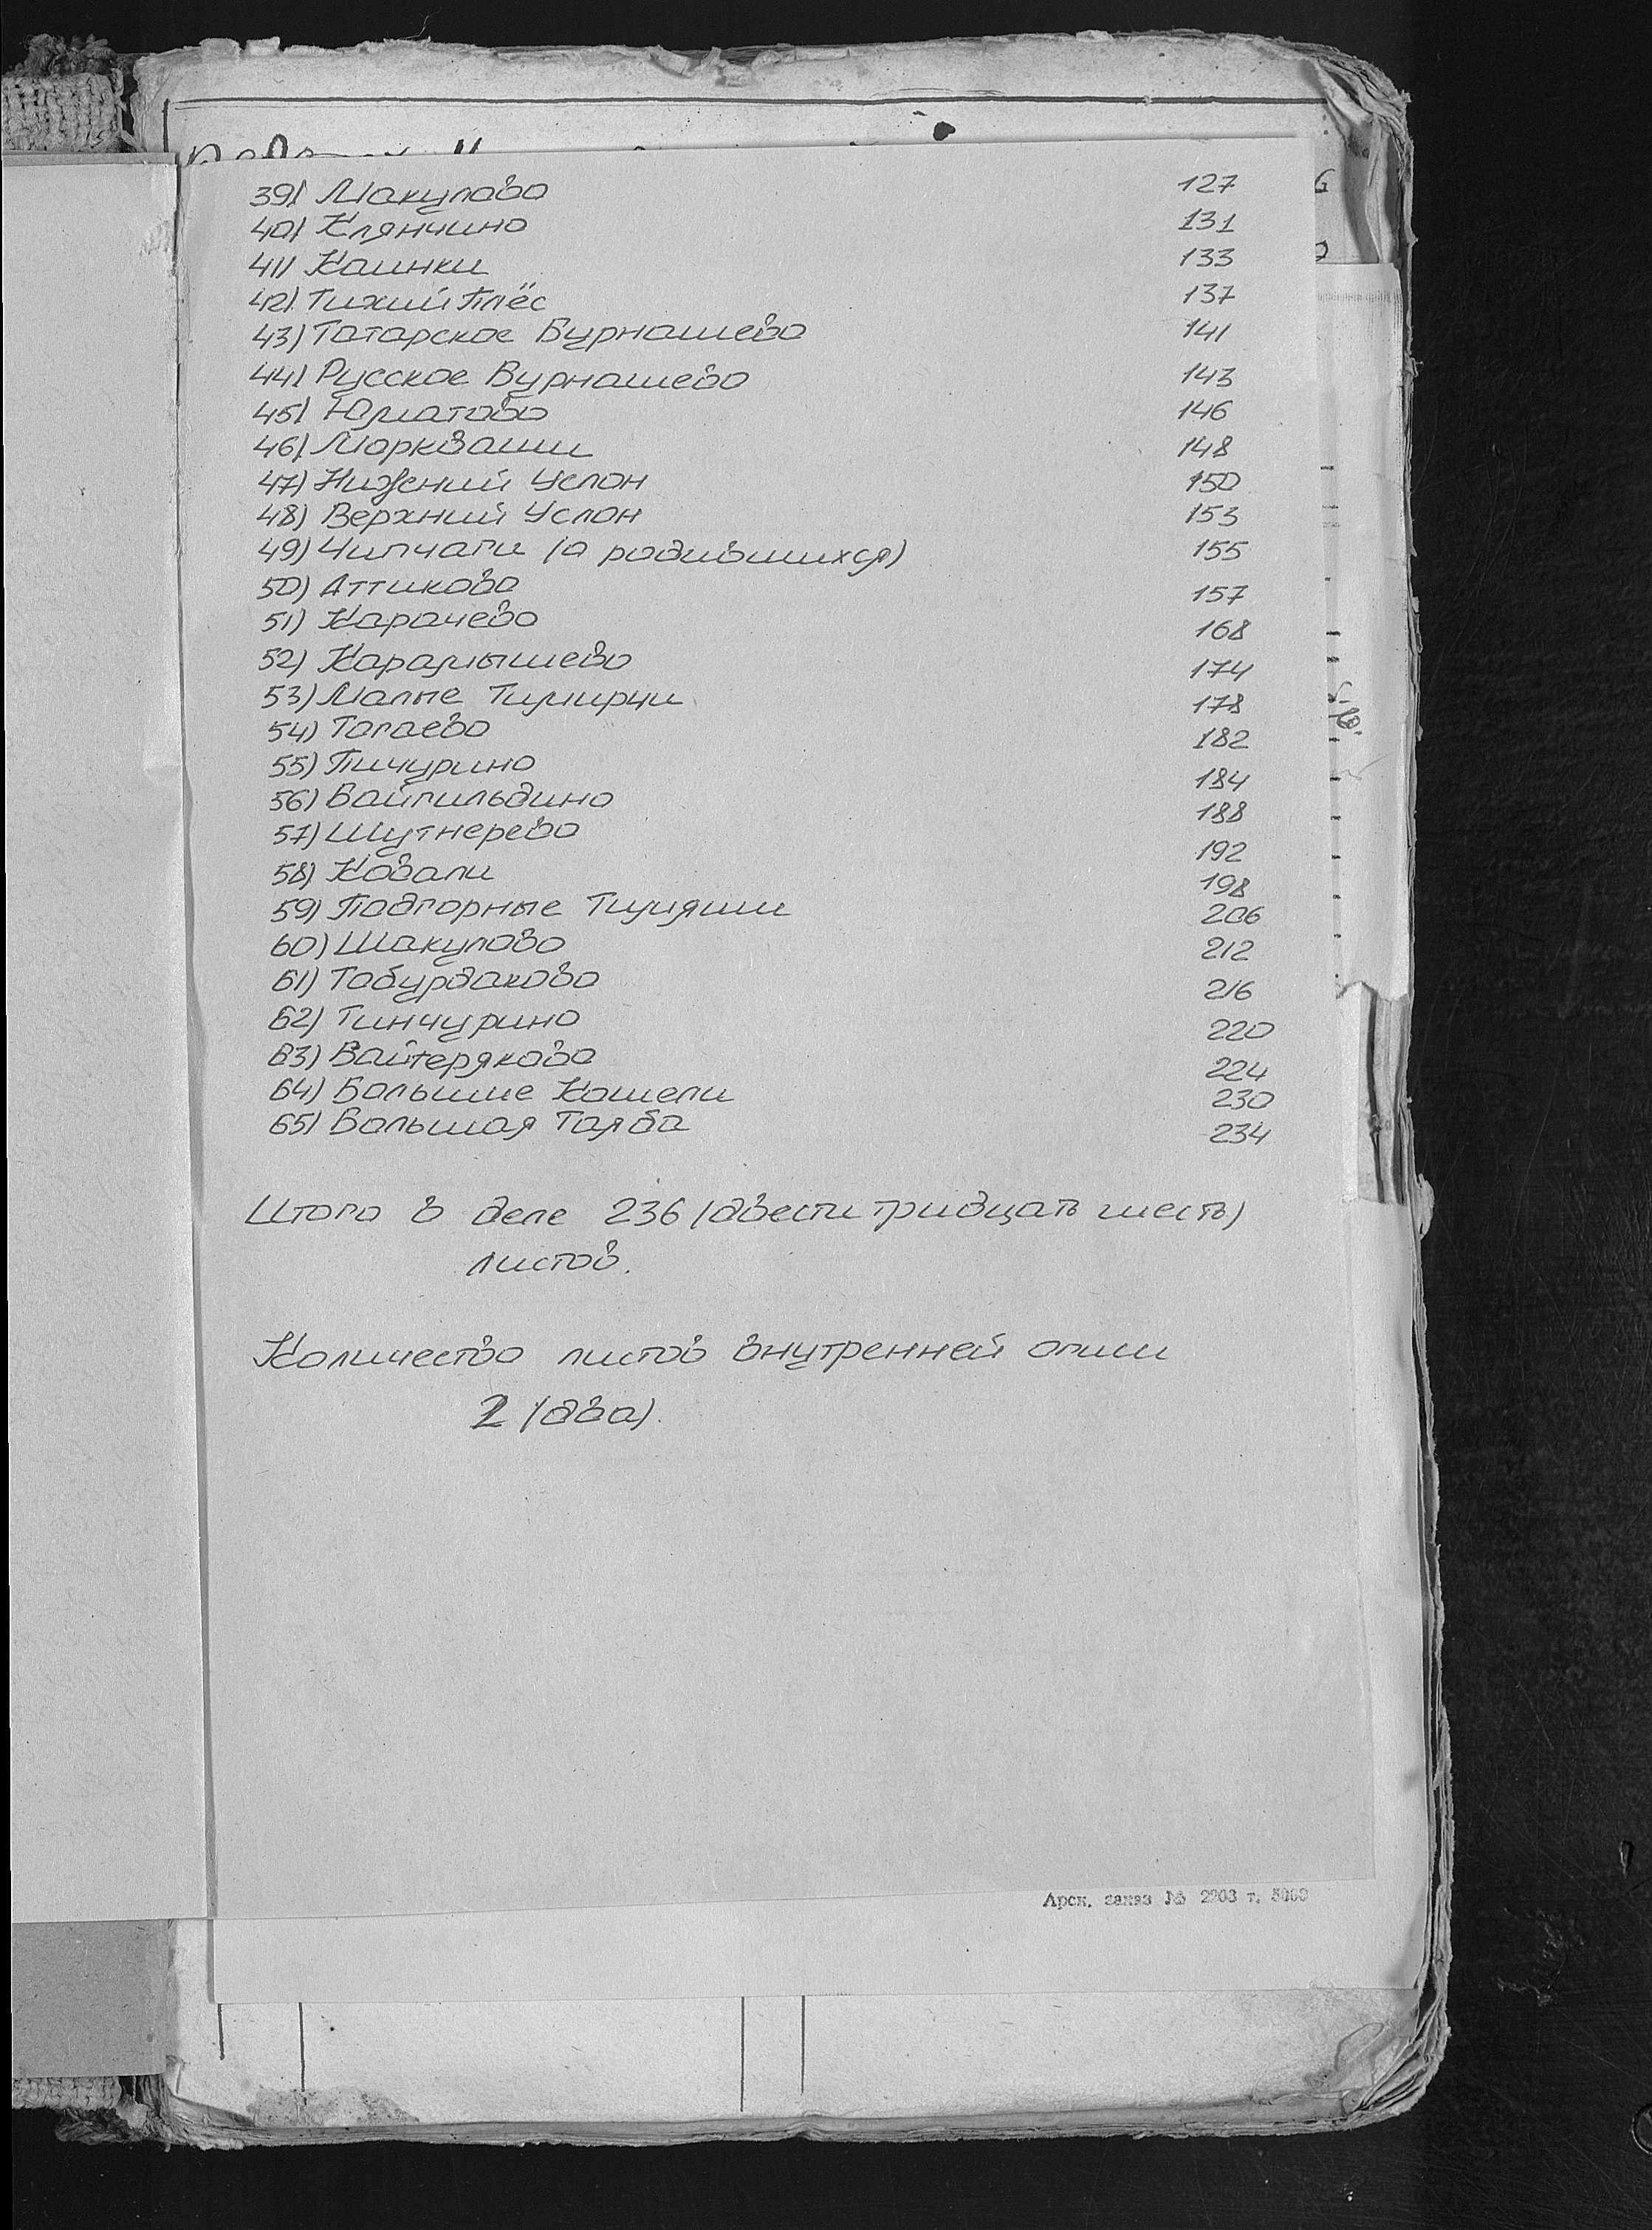 39) Макулово 127
40) Клянчино 131
41) Каинки 133
42) Тихий Плёс 137
43) Татарское Бурнашево 141
44) Русское Бурнашево 143
45) Юматово 146
46) Моркваши 148
47) Нижений Услон 150
48) Верхний Услон 153
49) Чипчаги (о родившихся) 155
50) Аттиково 157
51) Карачево 168
52) Карамышево 174
53) Малые Тимирчи 178
54) Тогаево 182
55) Пичурино 184
56) Байгильдино 188
57) Шутнерево 192
58) Ковали 198
59) Подгорные Тимяши 206
60) Шакулово 212
61) Табурдаково 216
62) Тинчурино 220
63) Байтеряково 224
64) Большие Кошели 230
65) Большая Таяба 234
Итого в деле 236 (двести тридцать шесть)
листов.
Количество листов внутренней описи
2 (два).
Арск. заказ № 2903 т. 5000